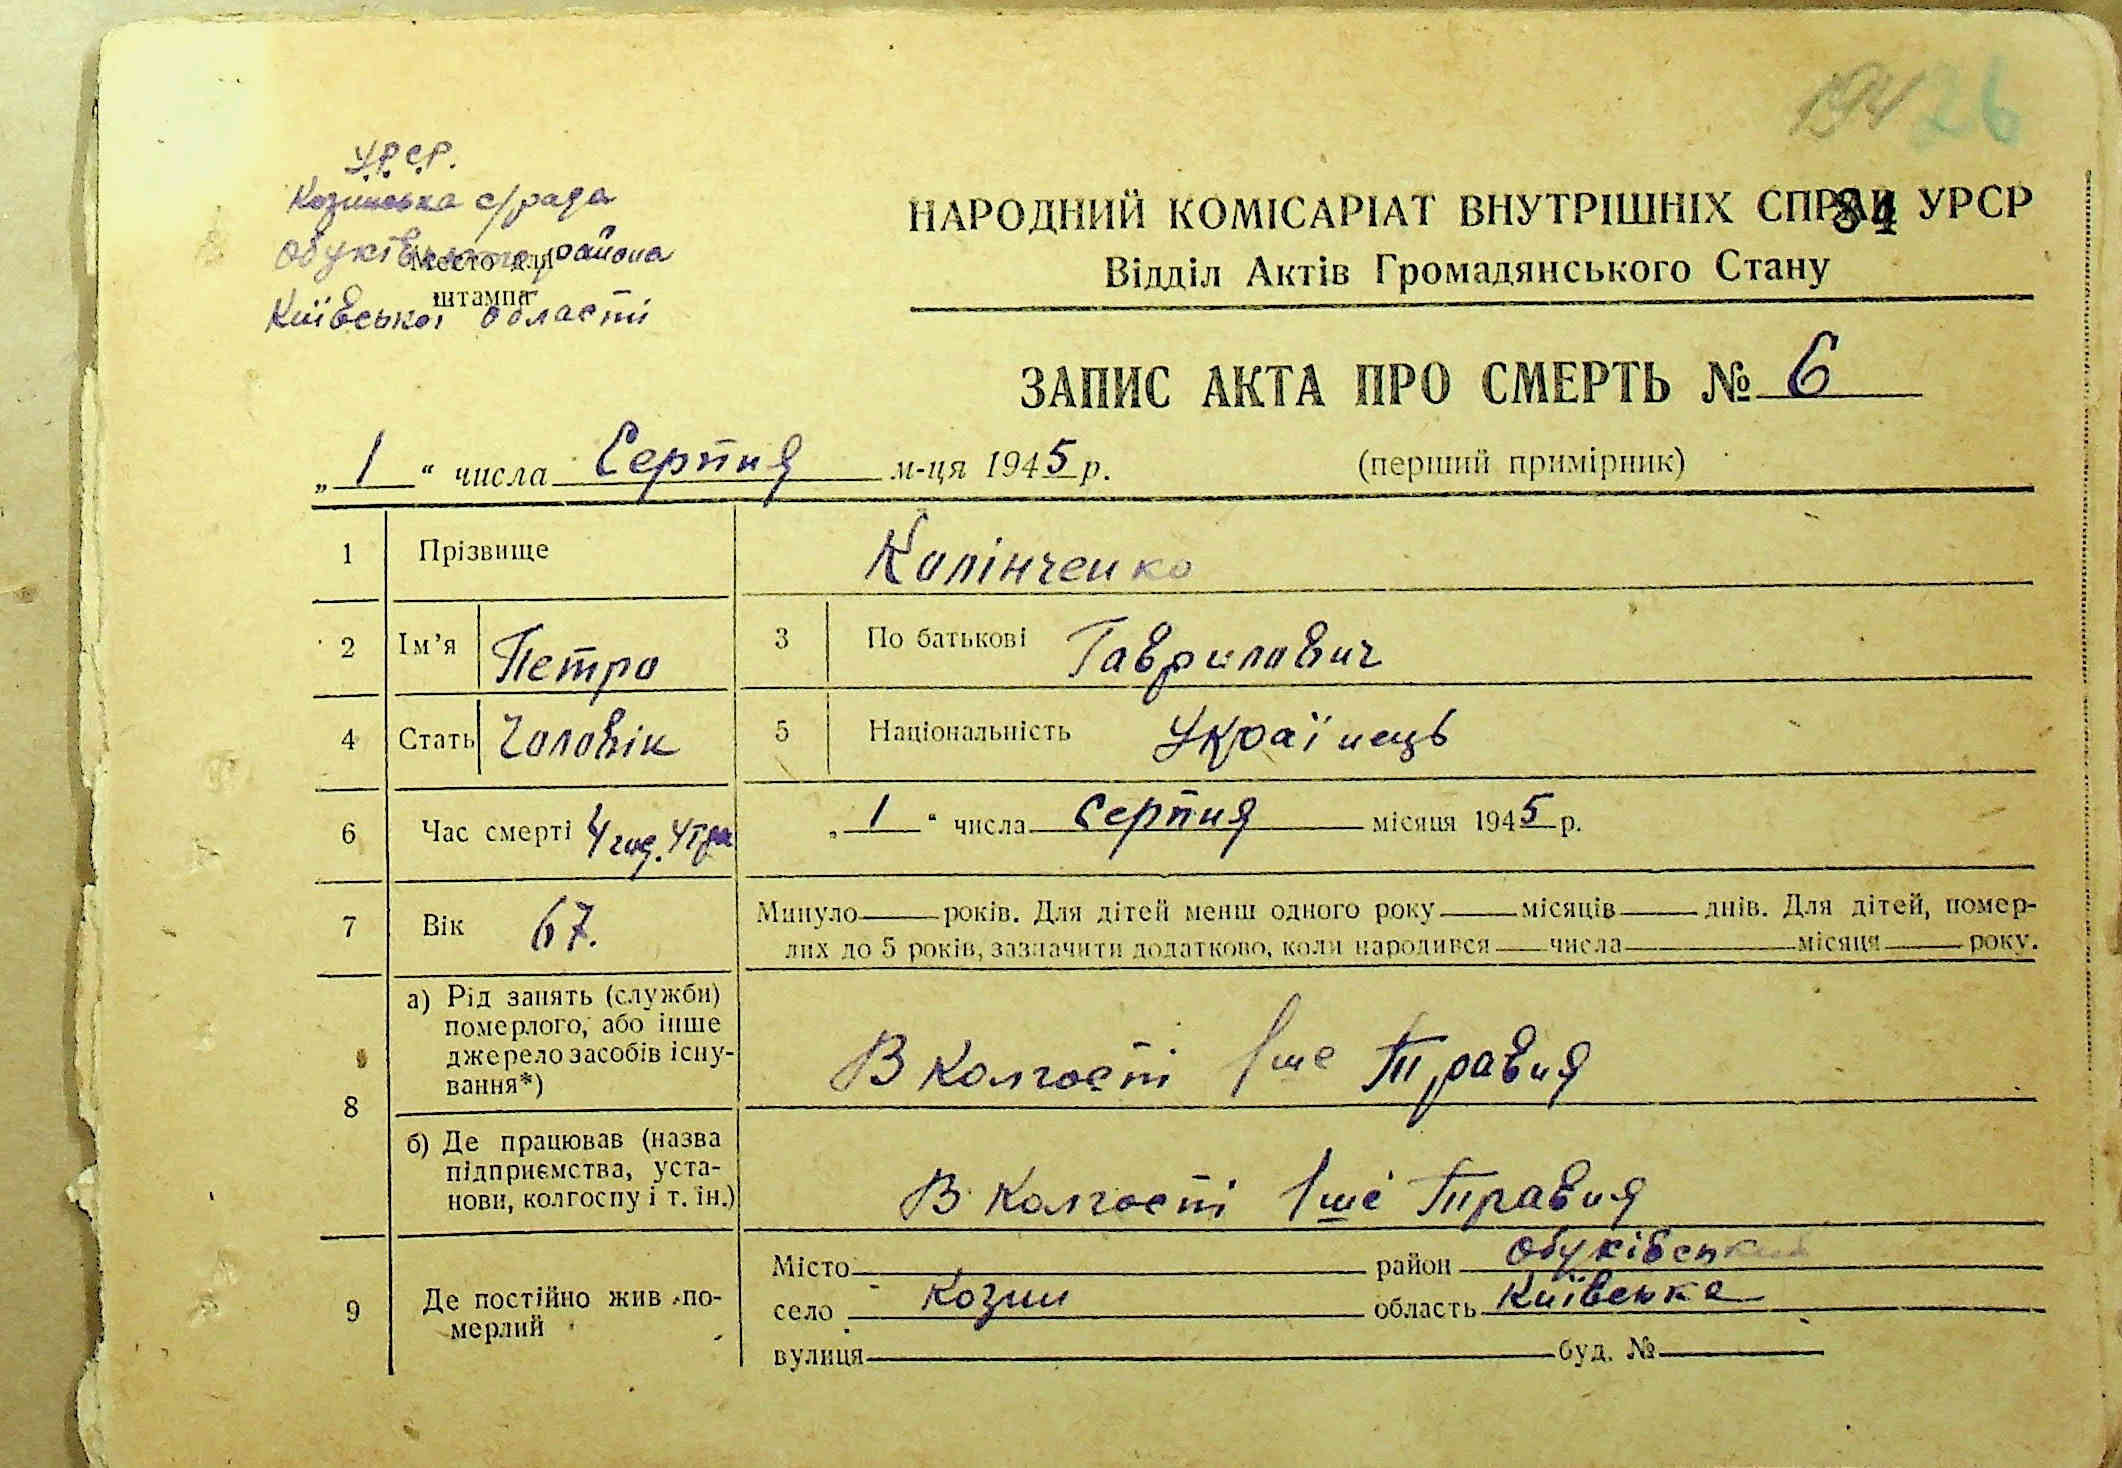 194 26
У.Р.С.Р.
Козинська с/рада
Обуківського району
Место для
штампа
Київської області
НАРОДНИЙ КОМІСАРІАТ ВНУТРІШНІХ СПРАВ УРСР
84
Відділ Актів Громадянського Стану
ЗАПИС АКТА ПРО СМЕРТЬ № 6
„ 1 “ числа Серпня м-ця 1945 р. (перший примірник)
1 Прізвище Колінченко
2 Ім’я Петро 3 По батькові Гаврилович
4 Стать Чоловік 5 Національність Українець
6 Час смерті 4 год. Утра „ 1 “ числа Серпня місяця 1945 р.
7 Вік 67. Минуло років. Для дітей менш одного року місяців днів. Для дітей, помер-
лих до 5 років, зазначити додатково, коли народився числа місяця року.
8 а) Рід занять (служби)
померлого, або інше
джерело засобів існу-
вання*)
В Колгоспі 1ше Травня
б) Де працював (назва
підприємства, уста-
нови, колгоспу і т. ін.)
В Колгоспі 1ше Травня
9 Де постійно жив по-
мерлий
Місто район Обуківський
село Козин область Київська
вулиця буд. №